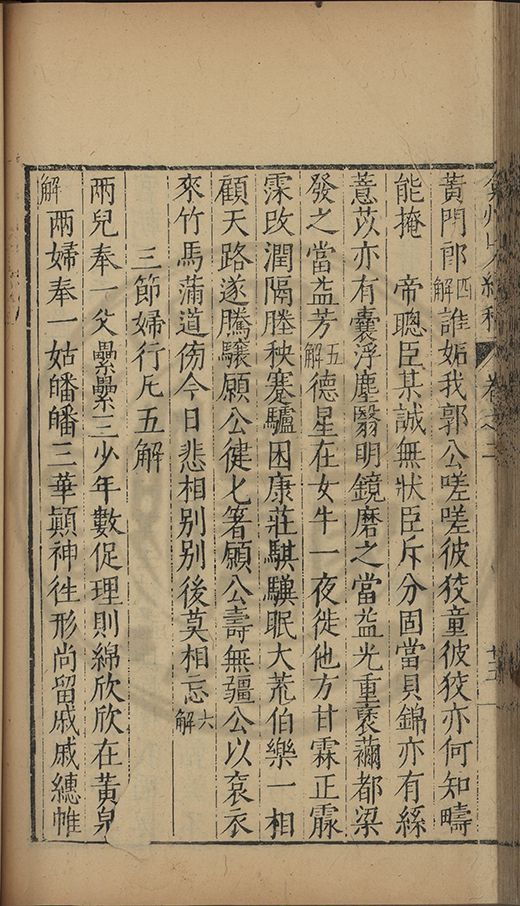 弇州山人續稿 卷之二 十五
黃門郎四解誰妬我郭公嗟嗟彼狡童彼狡亦何知疇
能掩 帝聰臣某誠無狀臣斥分固當貝錦亦有絲
薏苡亦有囊浮塵翳明鏡磨之當益光重裛薾都梁
發之當益芳五解德星在女牛一夜徙他方甘霖正霢
霂改潤隔塍秧蹇驢困康莊騏驥眠大荒伯樂一相
顧天路遂騰驤願公健匕箸願公壽無疆公以袞衣
來竹馬蒲道傍今日悲相别别後莫相忘六解
三節婦行凡五解
兩兒奉一父纍纍三少年數促理則綿欣欣在黃泉
解兩婦奉一姑皤皤三華顚神徃形尚留戚戚繐帷